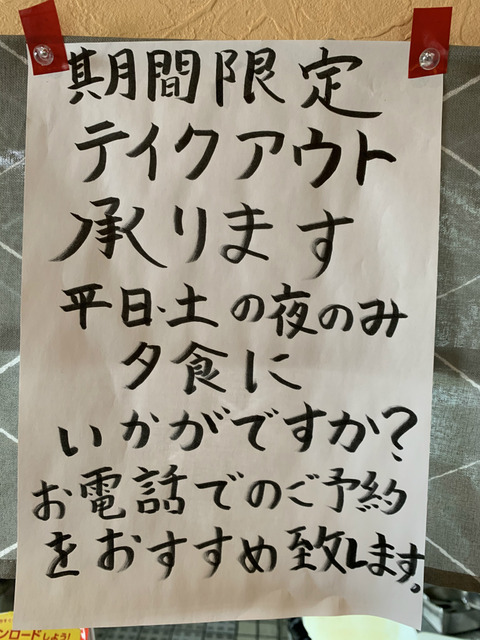 期間限定
テイクアウト
承ります
平日・土の夜のみ
夕食に
いかがですか?
お電話でのご予約
をおすすめ致します。
ンロードしよう!